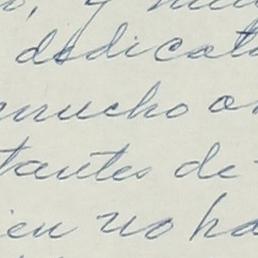 y
dedicat
mucho
tantes de
ien no ha